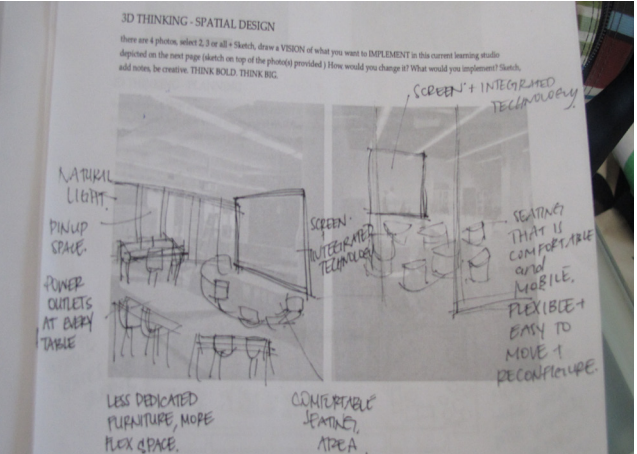 3D THINKING - SPATIAL DESIGN
there are 4 photos, select 2, 3 or all + Sketch, draw a VISION of what you want to IMPLEMENT in this current learning studio
depicted on the next page (sketch on top of the photo(s) provided ) How would you change it? What would you implement? Sketch,
add notes, be creative. THINK BOLD. THINK BIG.
SCREEN + INTEGRATED
TECHNOLOGY.
NATURAL
LIGHT.
PINUP
SPACE.
POWER
OUTLETS
AT EVERY
TABLE
SCREEN
INTEGRATED
TECHNOLOGY
SEATING
THAT IS
COMFORTABLE
and
MOBILE.
FLEXIBLE +
EASY TO
MOVE +
RECONFIGURE.
LESS DEDICATED
FURNITURE, MORE
FLEX SPACE.
COMFORTABLE
SEATING
AREA.